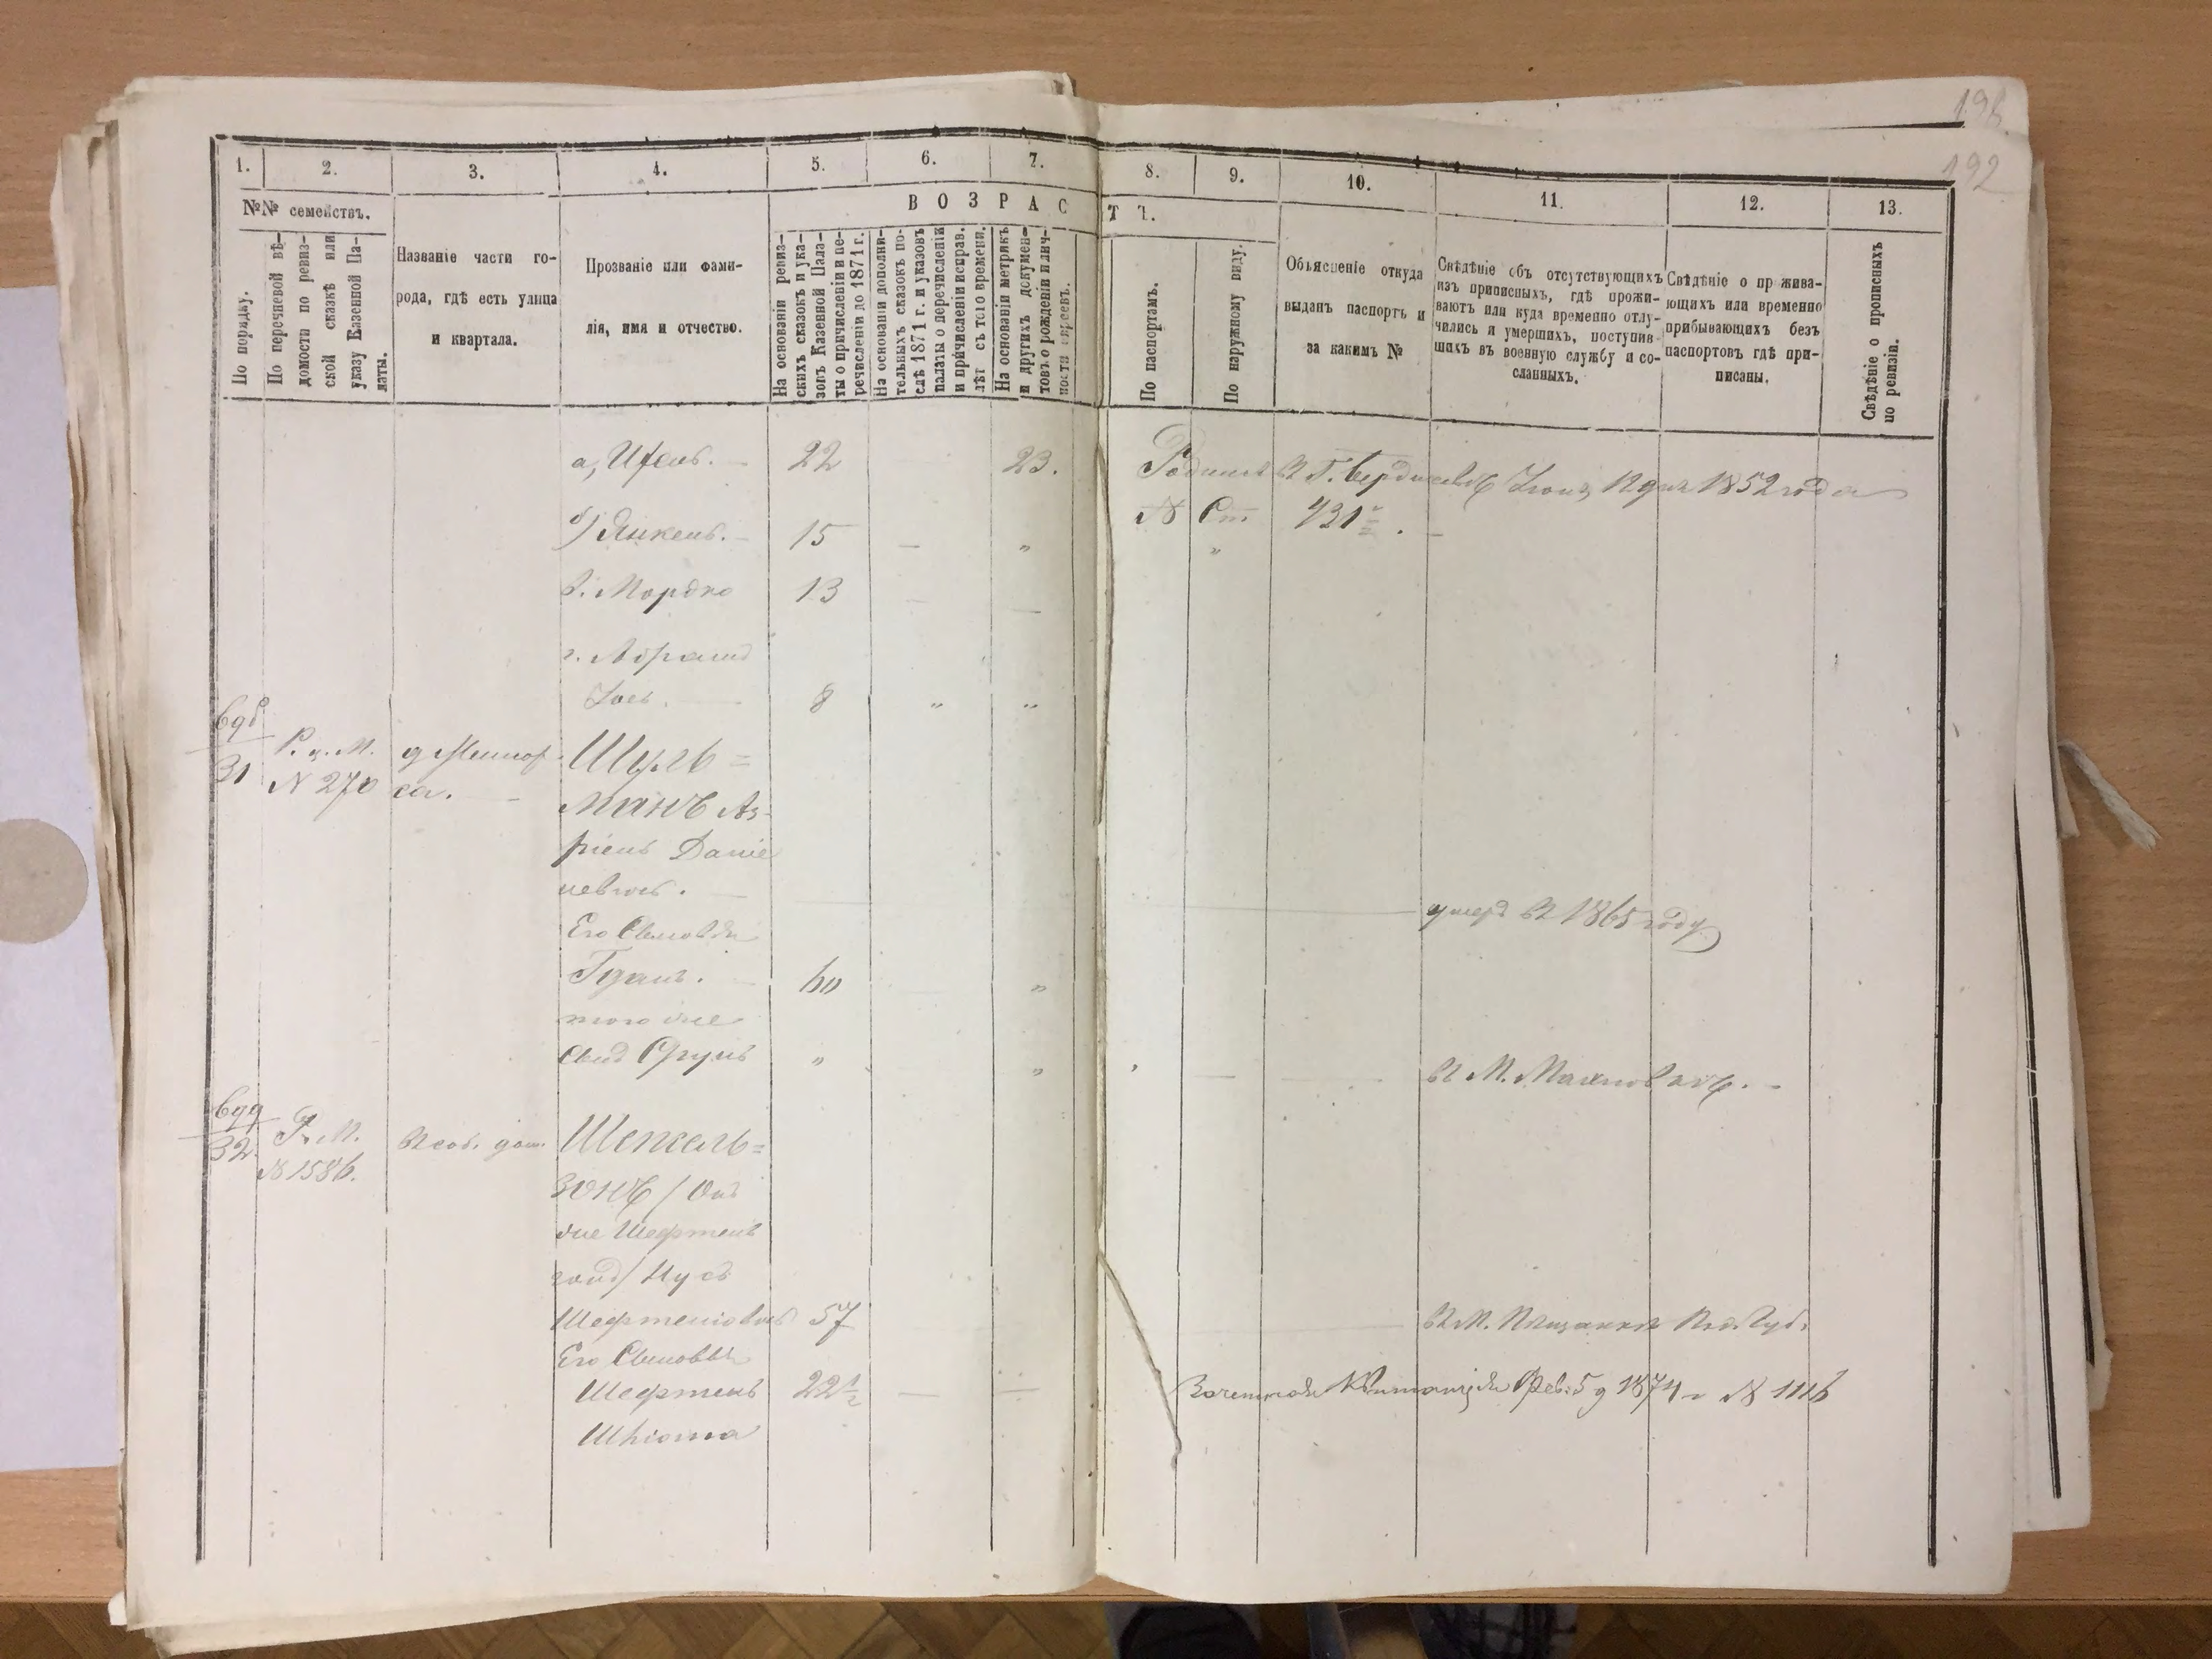 192
1. 2. 3. 4. 5. 6. 7. 8. 9. 10. 11. 12. 13.
№№ семействъ.
В О З Р А С Т Ъ.
По порядку.
По перечневой вѣ-
домости по ревиз-
ской сказкѣ или
указу Казенной Па-
латы.
Названіе части го-
рода, гдѣ есть улица
и квартала.
Прозваніе или фами-
лія, имя и отчество.
На основаніи ревиз-
скихъ сказокъ и ука-
зовъ Казенной Пала-
ты о причисленіи и пе-
речисленіи до 1871 г.
На основаніи дополни-
тельныхъ сказокъ по-
слѣ 1871 г. и указовъ
палаты о перечисленіи
и причисленіи исправ.
лѣт съ того времени.
На основаніи метрикъ
и другихъ докумен-
товъ о рожденіи и лич-
ности евреевъ.
По паспортамъ.
По наружному виду.
Объясненіе откуда
выданъ паспортъ и
за какимъ №
Свѣдѣніе объ отсутствующихъ
изъ приписныхъ, гдѣ прожи-
ваютъ или куда временно отлу-
чились и умершихъ, поступив-
шихъ въ военную службу и со-
сланныхъ.
Свѣдѣніе о прожива-
ющихъ или временно
прибывающихъ безъ
паспортовъ гдѣ при-
писаны.
Свѣдѣніе о прописныхъ
по ревизіи.
22 23. Родился въ Г. Бердичевѣ 12 дня 1852 года
б) Янкель. 15 № Ст. 431
в. Мордко 13
г. Абрамъ
Іось. 8
31 Р. М. № 270 Шуль=
манъ Аз-
ріель Даніе
левичъ. умеръ въ 1865 году
Его Сыновья
60
того же
сынъ Сруль въ М. Махновкѣ.
32 Р. М. № 1586. въ соб. дом. Шепсель=
зонъ / Онъ
же Шефтель
зонъ / Нусь
Шефтеліовичъ 57 въ М. Под. Губ.
Его Сыновья
Шефтель 22½ Зачетной Квитанціи Фев. 5 д 1874 г № 1116
Шліома